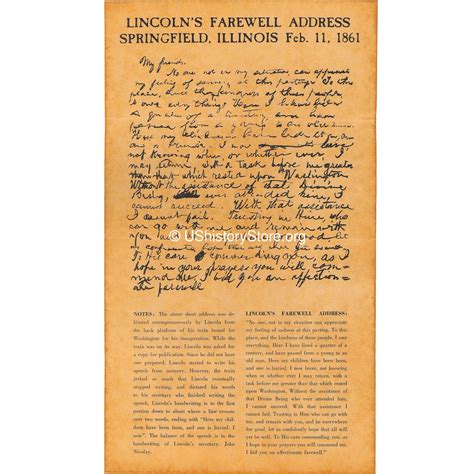 LINCOLN'S FAREWELL ADDRESS
SPRINGFIELD, ILLINOIS Feb. 11, 1861
My friends,
No one not in my situation, can appreciate
my feeling of sadness at this parting. To this
place, and the kindness of these people,
I owe every thing. Here I have lived
a quarter of a century, and have
passed from a young to an old man.
Here my children have been born, and
one is buried. I now leave,
not knowing when, or whether ever, I
may return, with a task before me greater
than that which rested upon Washington.
Without the assistance of that Divine
Being, ever attended him, I
cannot succeed. With that assistance
I cannot fail. Trusting in Him, who
can go with me, and remain with
you and
confidently hope that all will yet be well.
To His care commending you, as I
hope in your prayers you will com-
mend me, I bid you an affection-
ate farewell
© UShistoryStore.org
NOTES: The above short address was de-
livered extemporaneously by Lincoln from
the back platform of his train bound for
Washington for his inauguration. While the
train was on its way, Lincoln was asked for
a copy for publication. Since he did not have
one prepared, Lincoln started to write his
speech from memory. However, the train
jerked so much that Lincoln eventually
stopped writing, and dictated his words
to his secretary who finished writing the
speech. Lincoln's handwriting is in the first
portion down to about where a line crosses
over two words, ending with "Here my chil-
dren have been born, and one is buried. I
now". The balance of the speech is in the
handwriting of Lincoln's secretary, John
Nicolay.
LINCOLN'S FAREWELL ADDRESS:
"No one, not in my situation can appreciate
my feeling of sadness at this parting. To this
place, and the kindness of these people, I owe
everything. Here I have lived a quarter of a
century, and have passed from a young to an
old man. Here my children have been born,
and one is buried. I now leave, not knowing
when or whether ever I may return, with a
task before me greater than that which rested
upon Washington. Without the assistance of
that Divine Being who ever attended him,
I cannot succeed. With that assistance, I
cannot fail. Trusting in Him who can go with
me, and remain with you, and be everywhere
for good, let us confidently hope that all will
yet be well. To His care commending you, as
I hope in your prayers you will commend me,
I bid you an affectionate farewell."